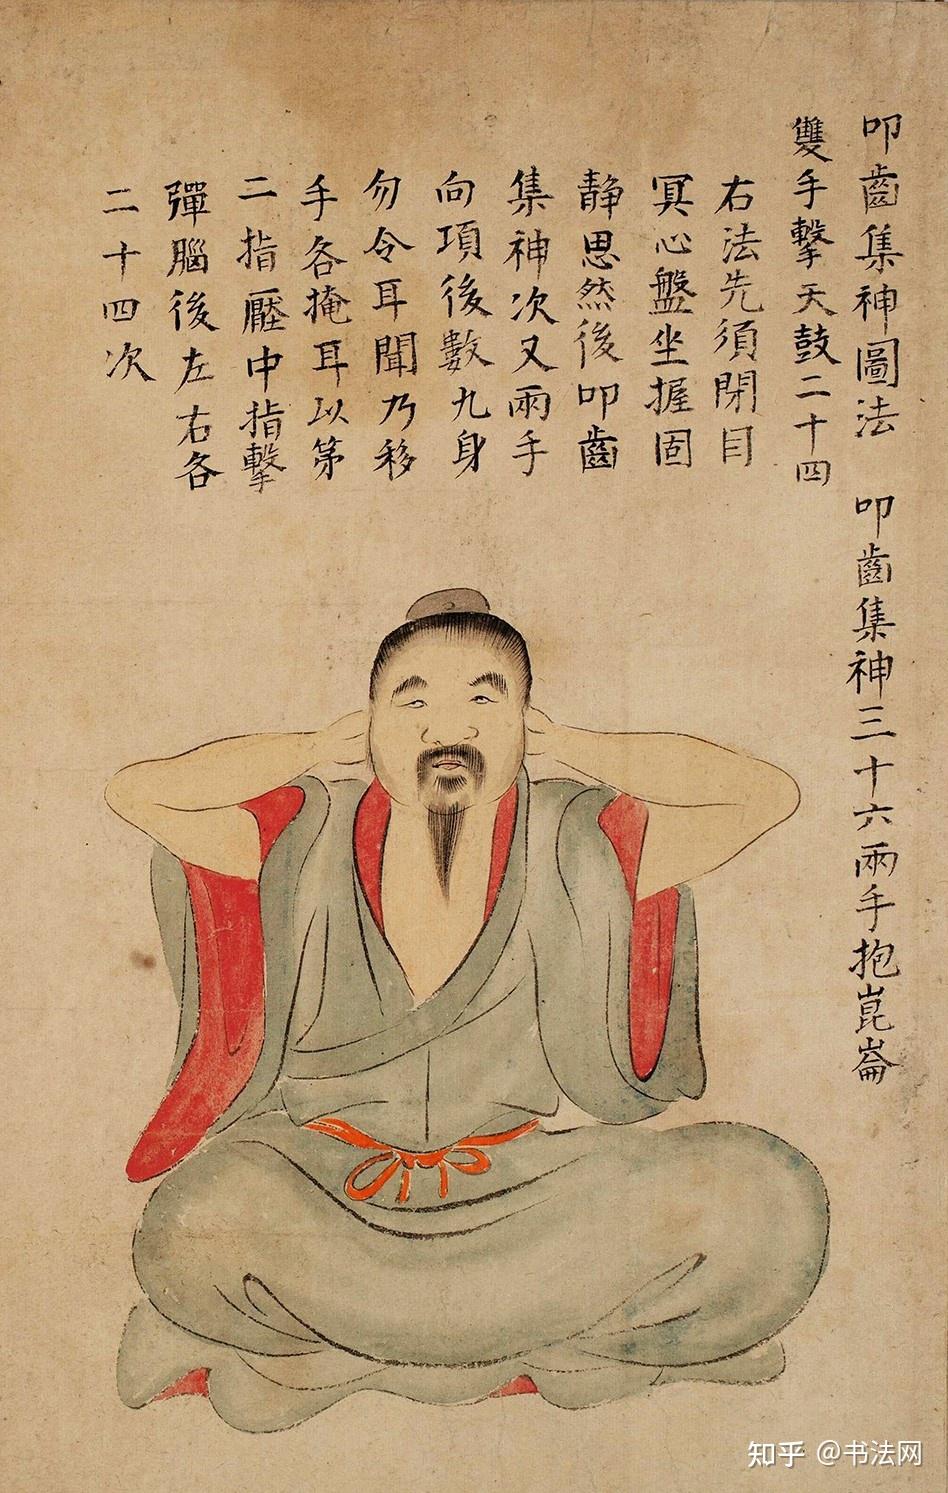 叩齒集神圖法 叩齒集神三十六兩手抱崑崙
雙手擊天鼓二十四
右法先須閉目
冥心盤坐握固
靜思然後叩齒
集神次叉兩手
向項後數九身
勿令耳聞乃移
手各掩耳以第
二指壓中指擊
彈腦後左右各
二十四次
知乎 @书法网